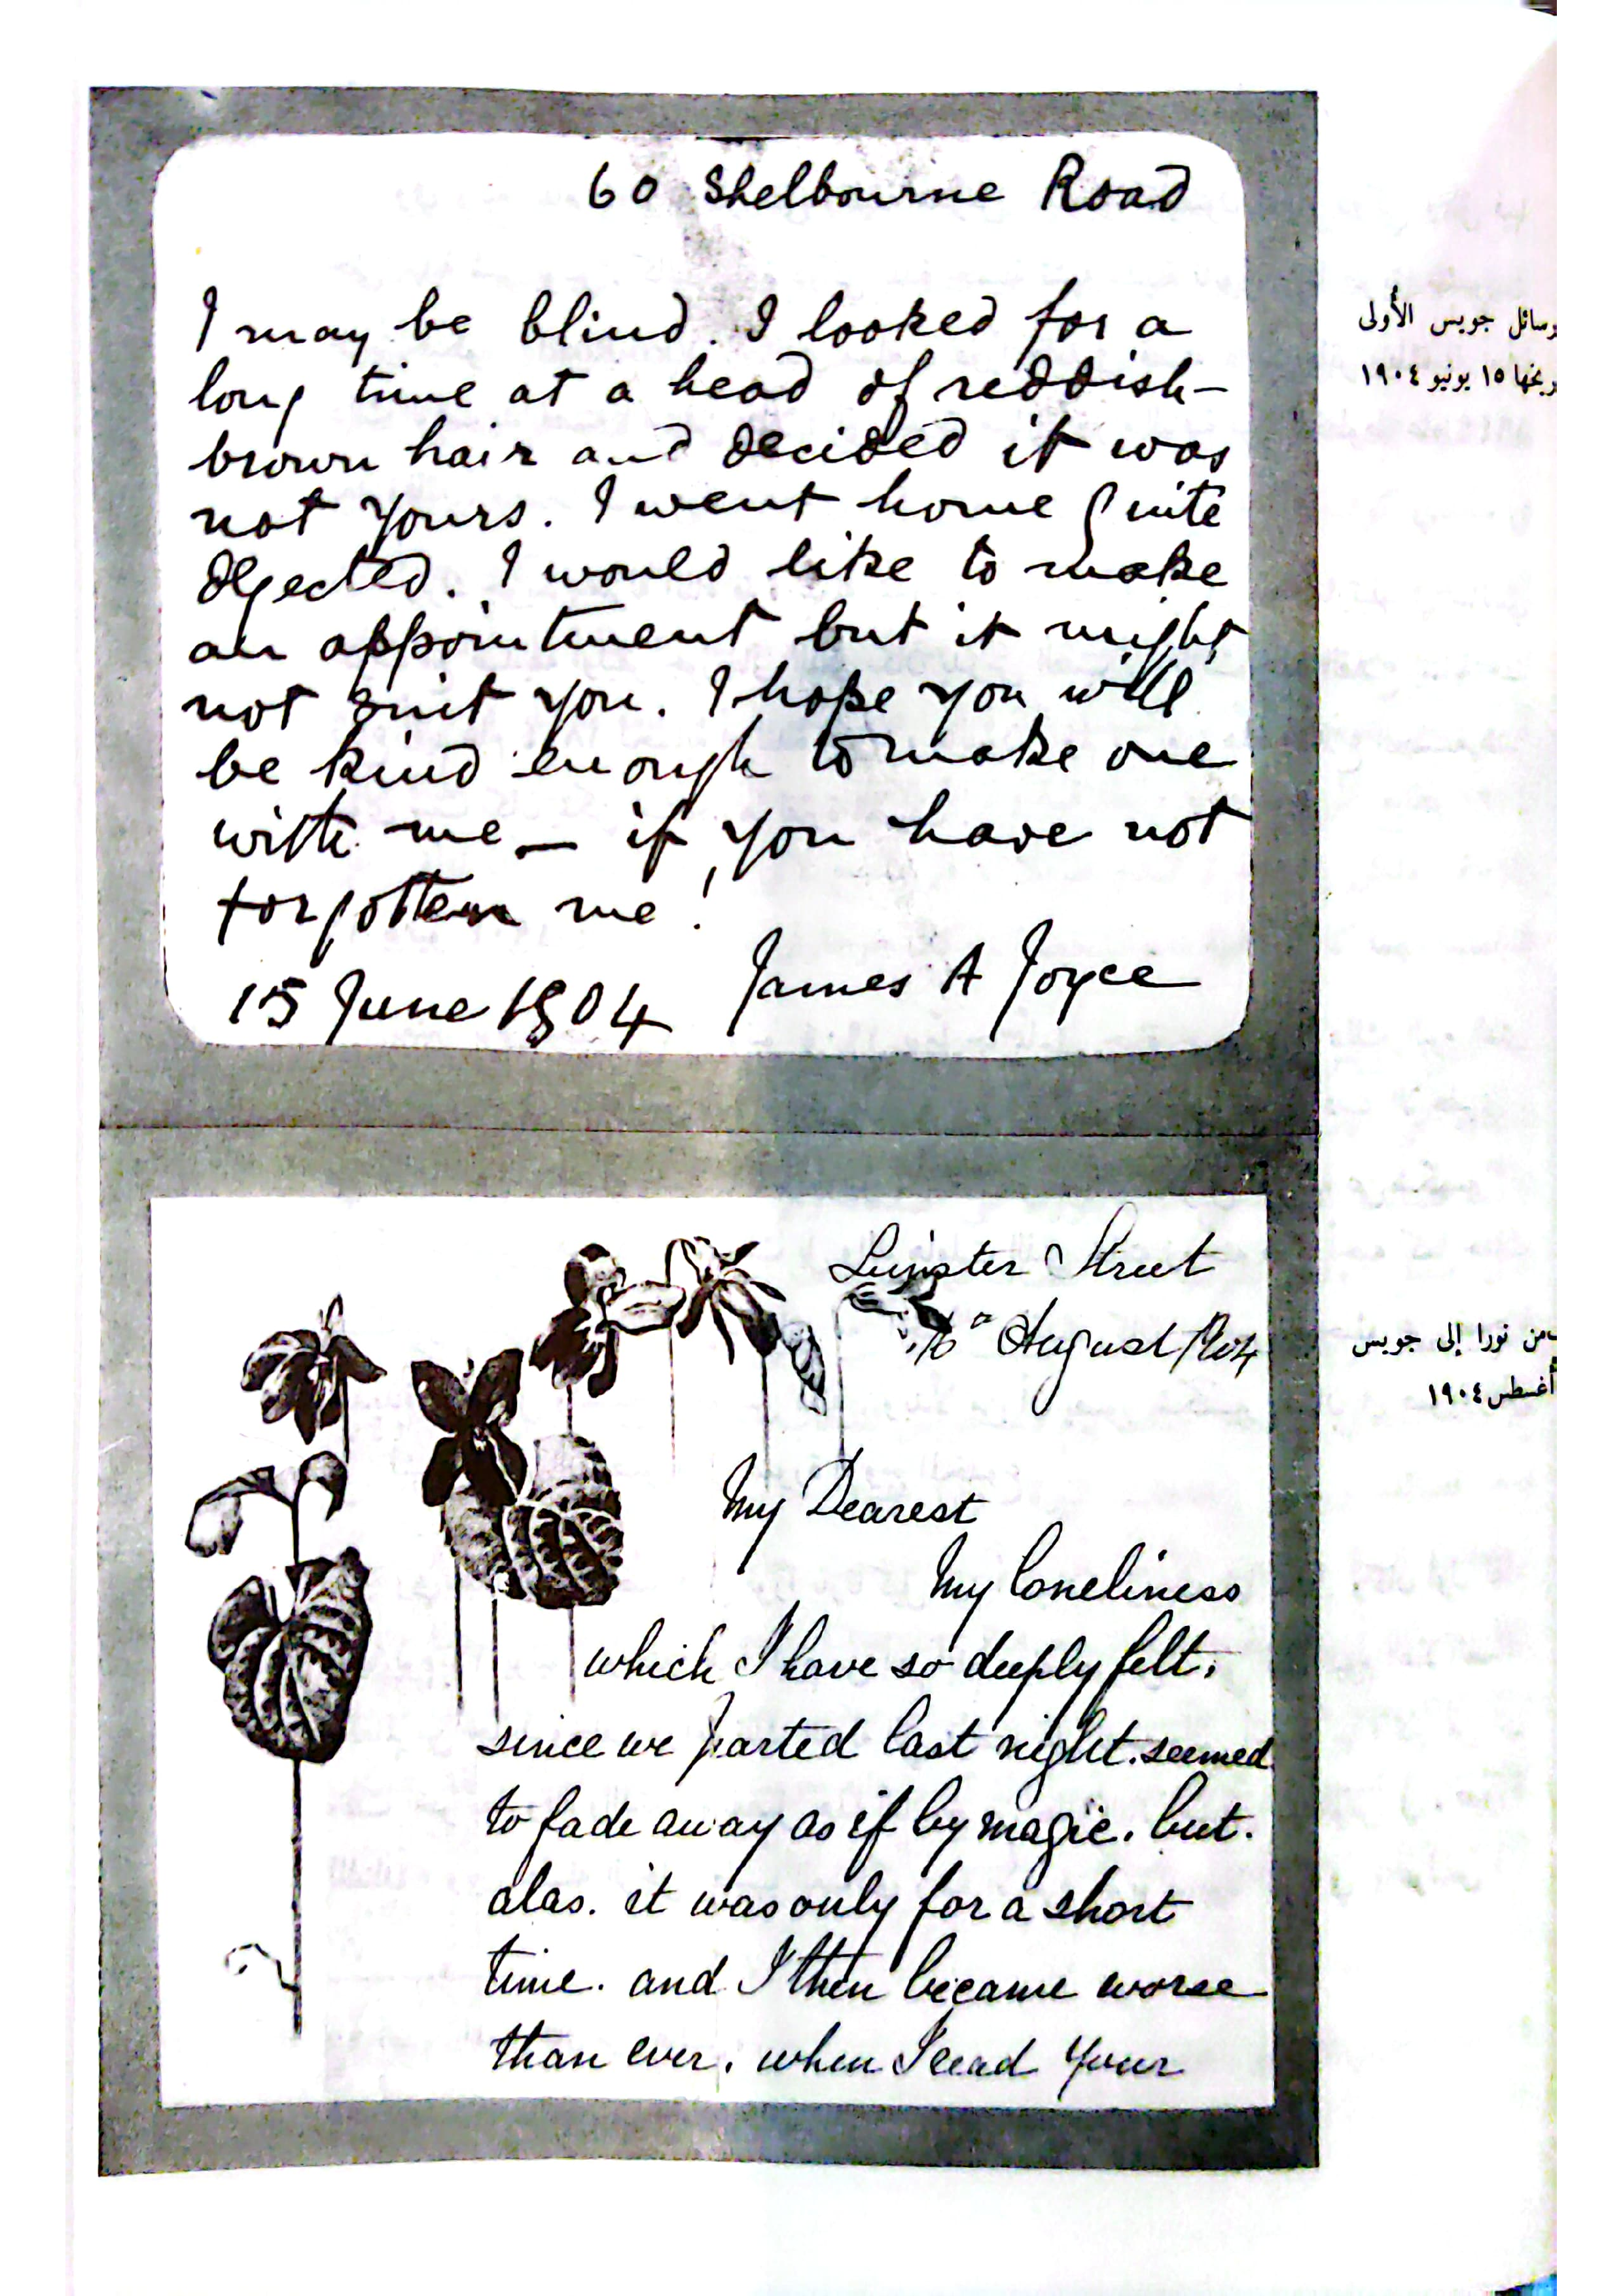 60 Shelbourne Road
I may be blind. I looked for a
long time at a head of reddish-
brown hair and decided it was
not yours. I went home quite
dejected. I would like to make
an appointment but it might
not suit you. I hope you will
be kind enough to make one
with me — if you have not
forgotten me!
James A Joyce
15 June 1904
رسائل جويس الأولى
١٥ يونيو ١٩٠٤
Leinster Street
16th August 1904
من نورا إلى جويس
أغسطس ١٩٠٤
My Dearest
My loneliness
which I have so deeply felt.
since we parted last night. seemed
to fade away as if by magic. but.
alas. it was only for a short
time. and I then became worse
than ever. when I read your